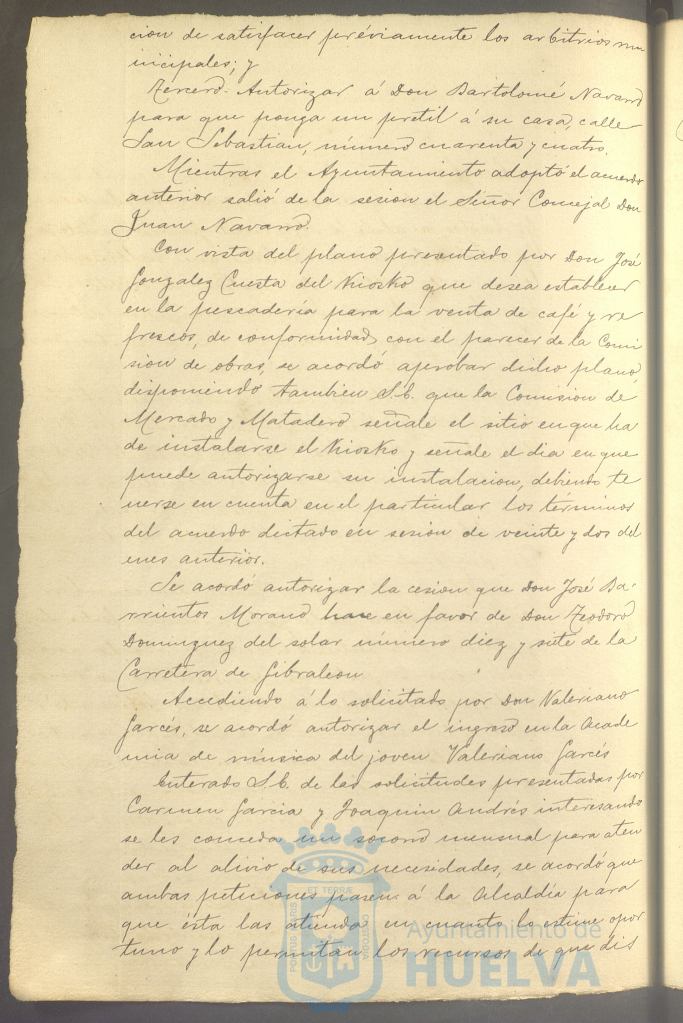 cion de satisfacer préviamente los arbitrios mu
nicipales; y
Tercero. Autorizar á Don Bartolomé Navarro
para que ponga un pretil á su casa, calle
San Sebastian, número cuarenta y cuatro.
Mientras el Ayuntamiento adoptó el acuerdo
anterior salió de la sesion el Señor Concejal Don
Juan Navarro.
Con vista del plano presentado por Don José
Gonzalez Cuesta del Kiosko que desea establecer
en la pescadería para la venta de café y re
frescos, de conformidad con el parecer de la Comi
sion de obras, se acordó aprobar dicho plano,
disponiendo tambien S.E. que la Comision de
Mercado y Matadero señale el sitio en que ha
de instalarse el Kiosko y señale el dia en que
puede autorizarse su instalacion, debiendo te
nerse en cuenta en el particular los términos
del acuerdo dictado en sesion de veinte y dos del
mes anterior.
Se acordó autorizar la cesion que Don José Ba-
rrientos Morano hace en favor de Don Teodoro
Dominguez del solar número diez y siete de la
Carretera de Gibraleon
Accediendo á lo solicitado por Don Valeriano
Garcés, se acordó autorizar el ingreso en la Acade
mia de música del joven Valeriano Garcés
Enterado S.E. de las solicitudes presentadas por
Carmen Garcia y Joaquin Andrés interesando
se les conceda un socorro mensual para aten
der al alivio de sus necesidades, se acordó que
ambas peticiones pasen á la Alcaldía para
que ésta las atienda en cuanto lo estime opor
tuno y lo permitan los recursos de que dis
PORTUS MARIS
ET TERRÆ
CUSTODIA
Ayuntamiento de
HUELVA